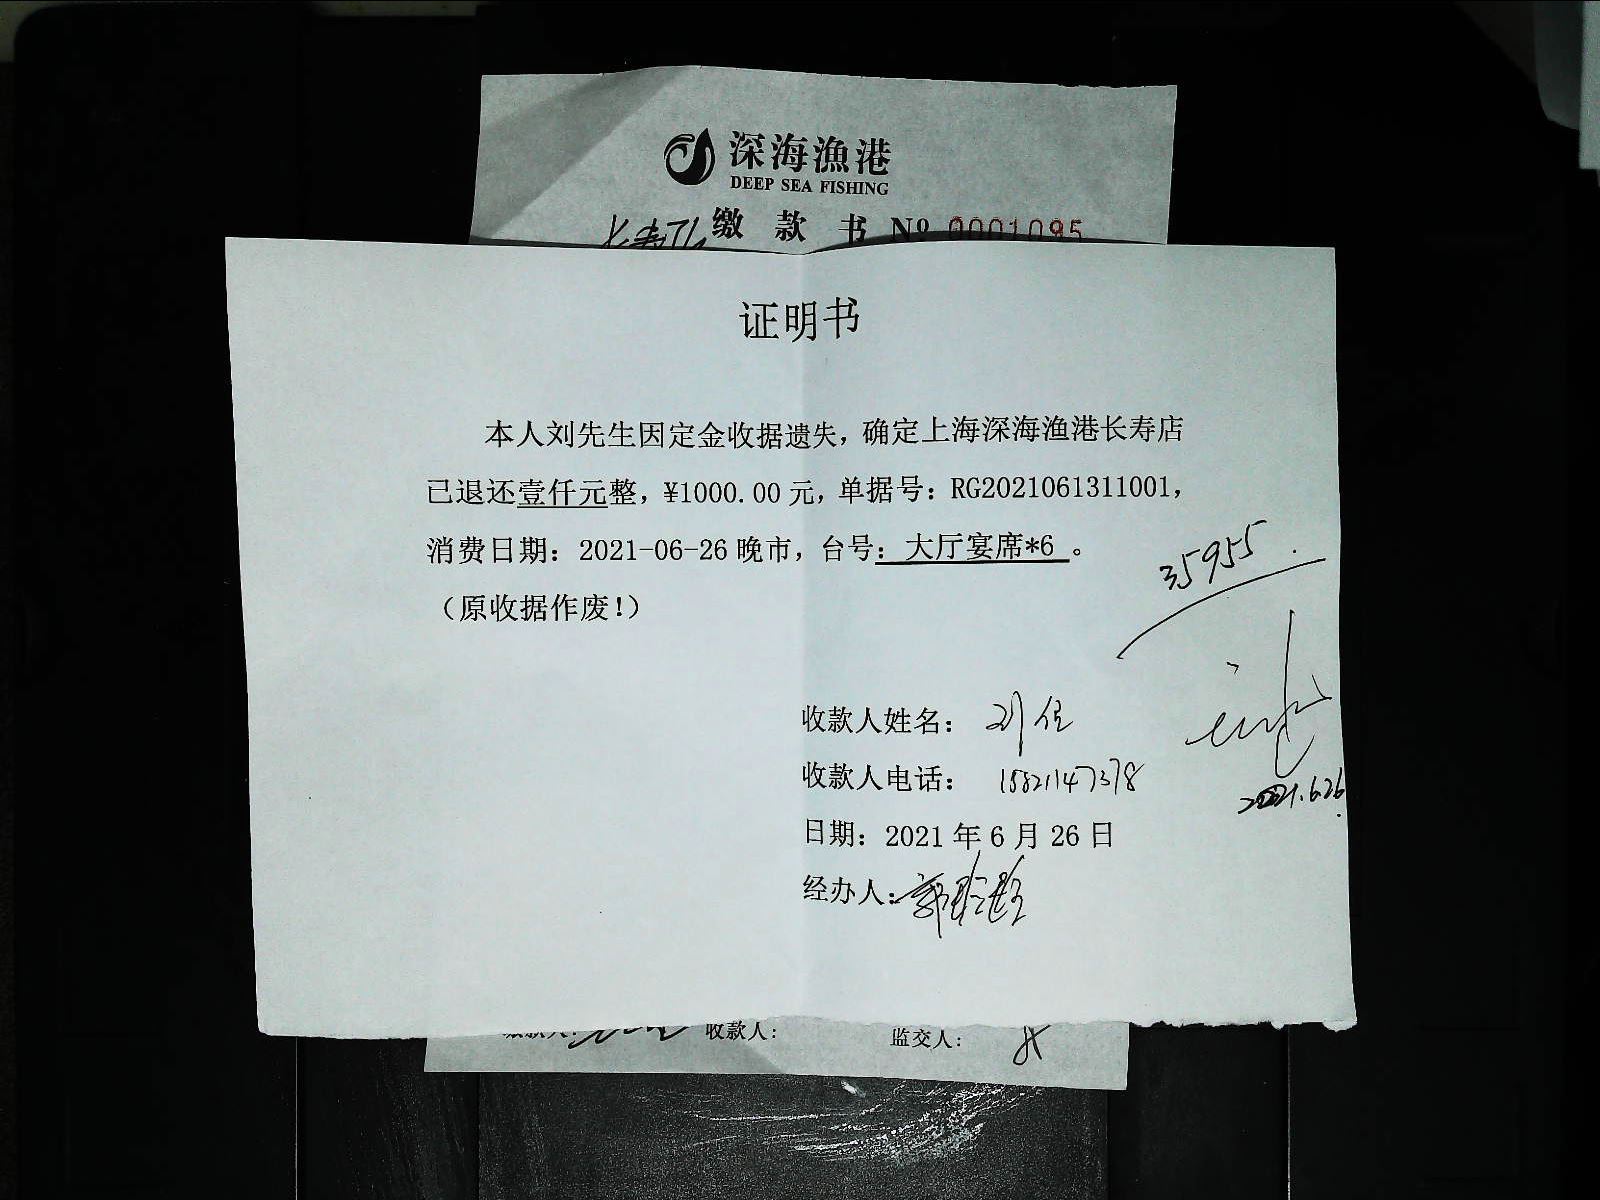 深海漁港
DEEP SEA FISHING
缴 款 书 № 0001095
证明书
本人刘先生因定金收据遗失，确定上海深海渔港长寿店
已退还壹仟元整，¥1000.00 元，单据号：RG2021061311001，
消费日期：2021-06-26 晚市，台号：大厅宴席*6 。
（原收据作废！）
35955
收款人姓名：刘
收款人电话：15821147378
2021.6.26
日期：2021 年 6 月 26 日
经办人：郭
缴款人： 收款人： 监交人：